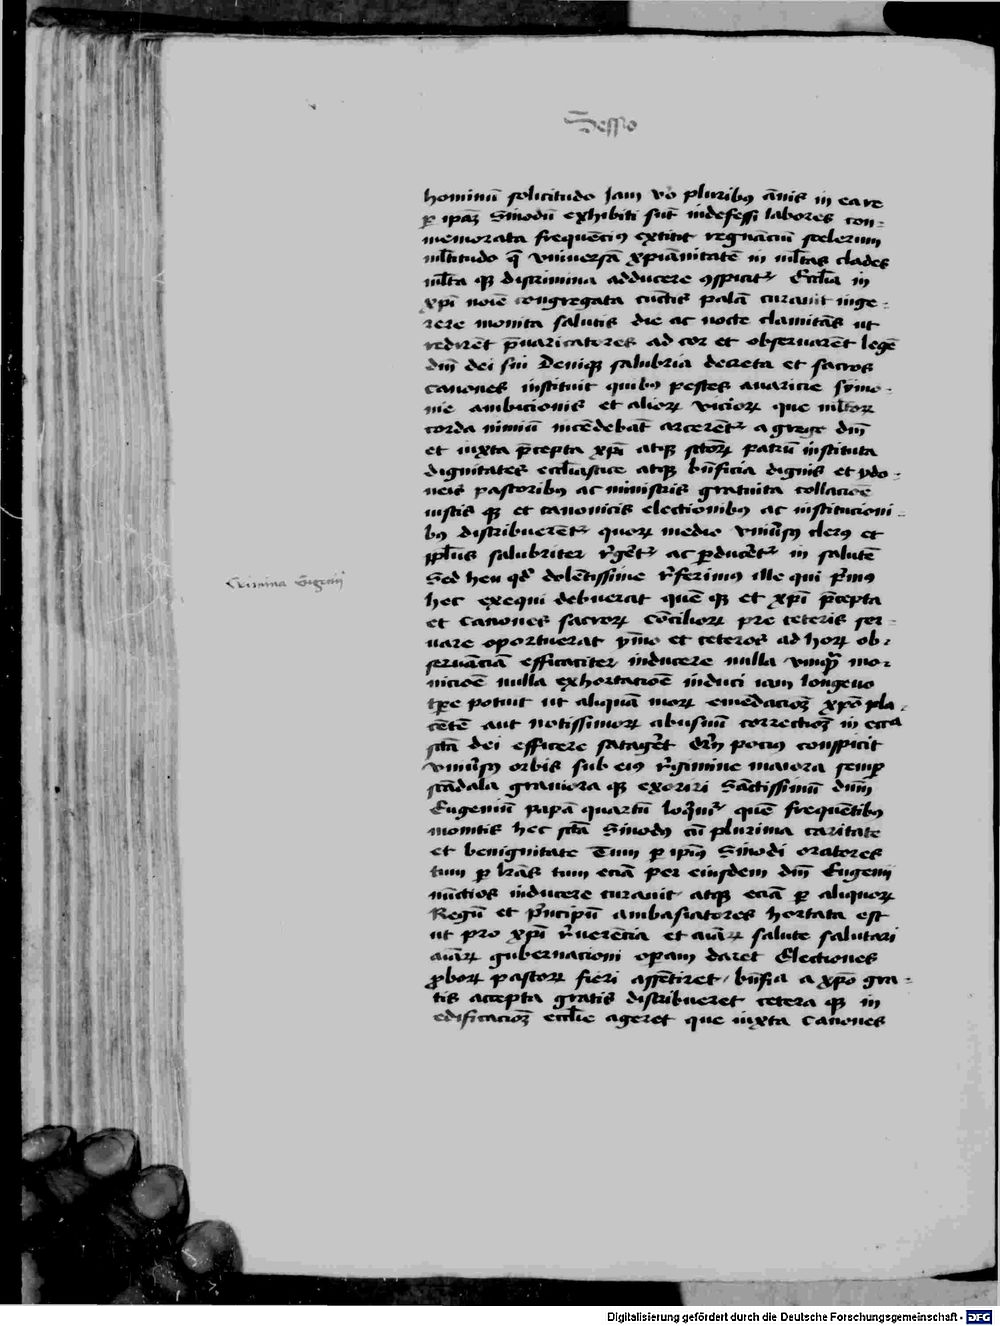 Sessio
hominū solicitudo Jam v̄o pluribꝰ ānis in ea re
ꝑ ipaꝫ Sinodū exhibiti sūt indefessi labores con-
memorata frequēciꝰ extitit regnāciū scelerum
ml̄titudo q̄ vniversā xp̄ianitatē in ml̄tas clades
ml̄ta qꝫ discrimina adducere ꝯspicit᷑ Eccl̄ia in
xp̄i noīe congregata cūctis palā curauit inge-
rere monita salutis die ac nocte clamitās ut
redirēt p̄uaricatores ad cor et obseruarēt legē
dn̄i dei sui Deniqꝫ salubria decreta et sacros
canones instituit quibꝰ pestes auaricie symo-
nie ambicionis et alioꝝ vicioꝝ que ml̄toꝝ
corda nimiū incēdebāt arcerēt᷑ a grege dn̄i
et iuxta p̄cepta xp̄i atqꝫ sc̄toꝝ patrū instituta
dignitates eccl̄iastice atqꝫ bn̄ficia dignis et ydo-
neis pastoribꝰ ac ministris gratuita collacōe
iustis qꝫ et canonicis electionibꝰ ac institucioni-
bꝰ distribuerēt᷑ quoꝝ medio vniūsꝰ clerꝰ et
ppl̄us salubriter r̄gēt᷑ ac ꝑducēt᷑ in salutē
Crimina Eugenij
Sed heu qd̄ dolētissime r̄ferimꝰ ille qui p̄mꝰ
hec exequi debuerat quē qꝫ et xp̄i p̄cepta
et canones sacroꝝ cōcilioꝝ pre ceteris ser-
uare oportuerat ymo et ceteros ad hoꝝ ob-
seruāciā efficaciter inducere nulla vmqꝫ mo-
nicōe nulla exhortacōe induci iam longeuo
tꝑe potuit ut aliquā moꝝ emēdacōꝫ xp̄o pla-
cētē aut notissimoꝝ abusuū correctiōꝫ in ecc̄a
sc̄tā dei efficere satagēt Dū pociꝰ conspicit
vniūsꝰ orbis sub eiꝰ r̄gimine maiora semꝑ
scādala graviora qꝫ exoriri Sāctissimū dn̄m
Eugeniū papā quartū loq̄mur quē frequētibꝰ
monitis hec sc̄tā Sinodꝰ cū plurima caritate
et benignitate Tum ꝑ ipiꝰ Sinodi oratores
tum ꝑ lr̄as tum eciā per eiusdem dn̄i Eugenii
nūctios inducere curauit atqꝫ eciā ꝑ aliquoꝝ
Regū et p̄ncipū ambasiatores hortata est
ut pro xp̄i r̄uerēcia et aīaꝝ salute salutari
aīaꝝ gubernacioni oꝑam daret Electiones
ꝓboꝝ pastoꝝ fieri assētiret / bn̄fia a xp̄o gra-
tis accepta gratis distribueret cetera qꝫ in
edificacōꝫ eccl̄ie ageret que iuxta canones
Digitalisierung gefördert durch die Deutsche Forschungsgemeinschaft - DFG